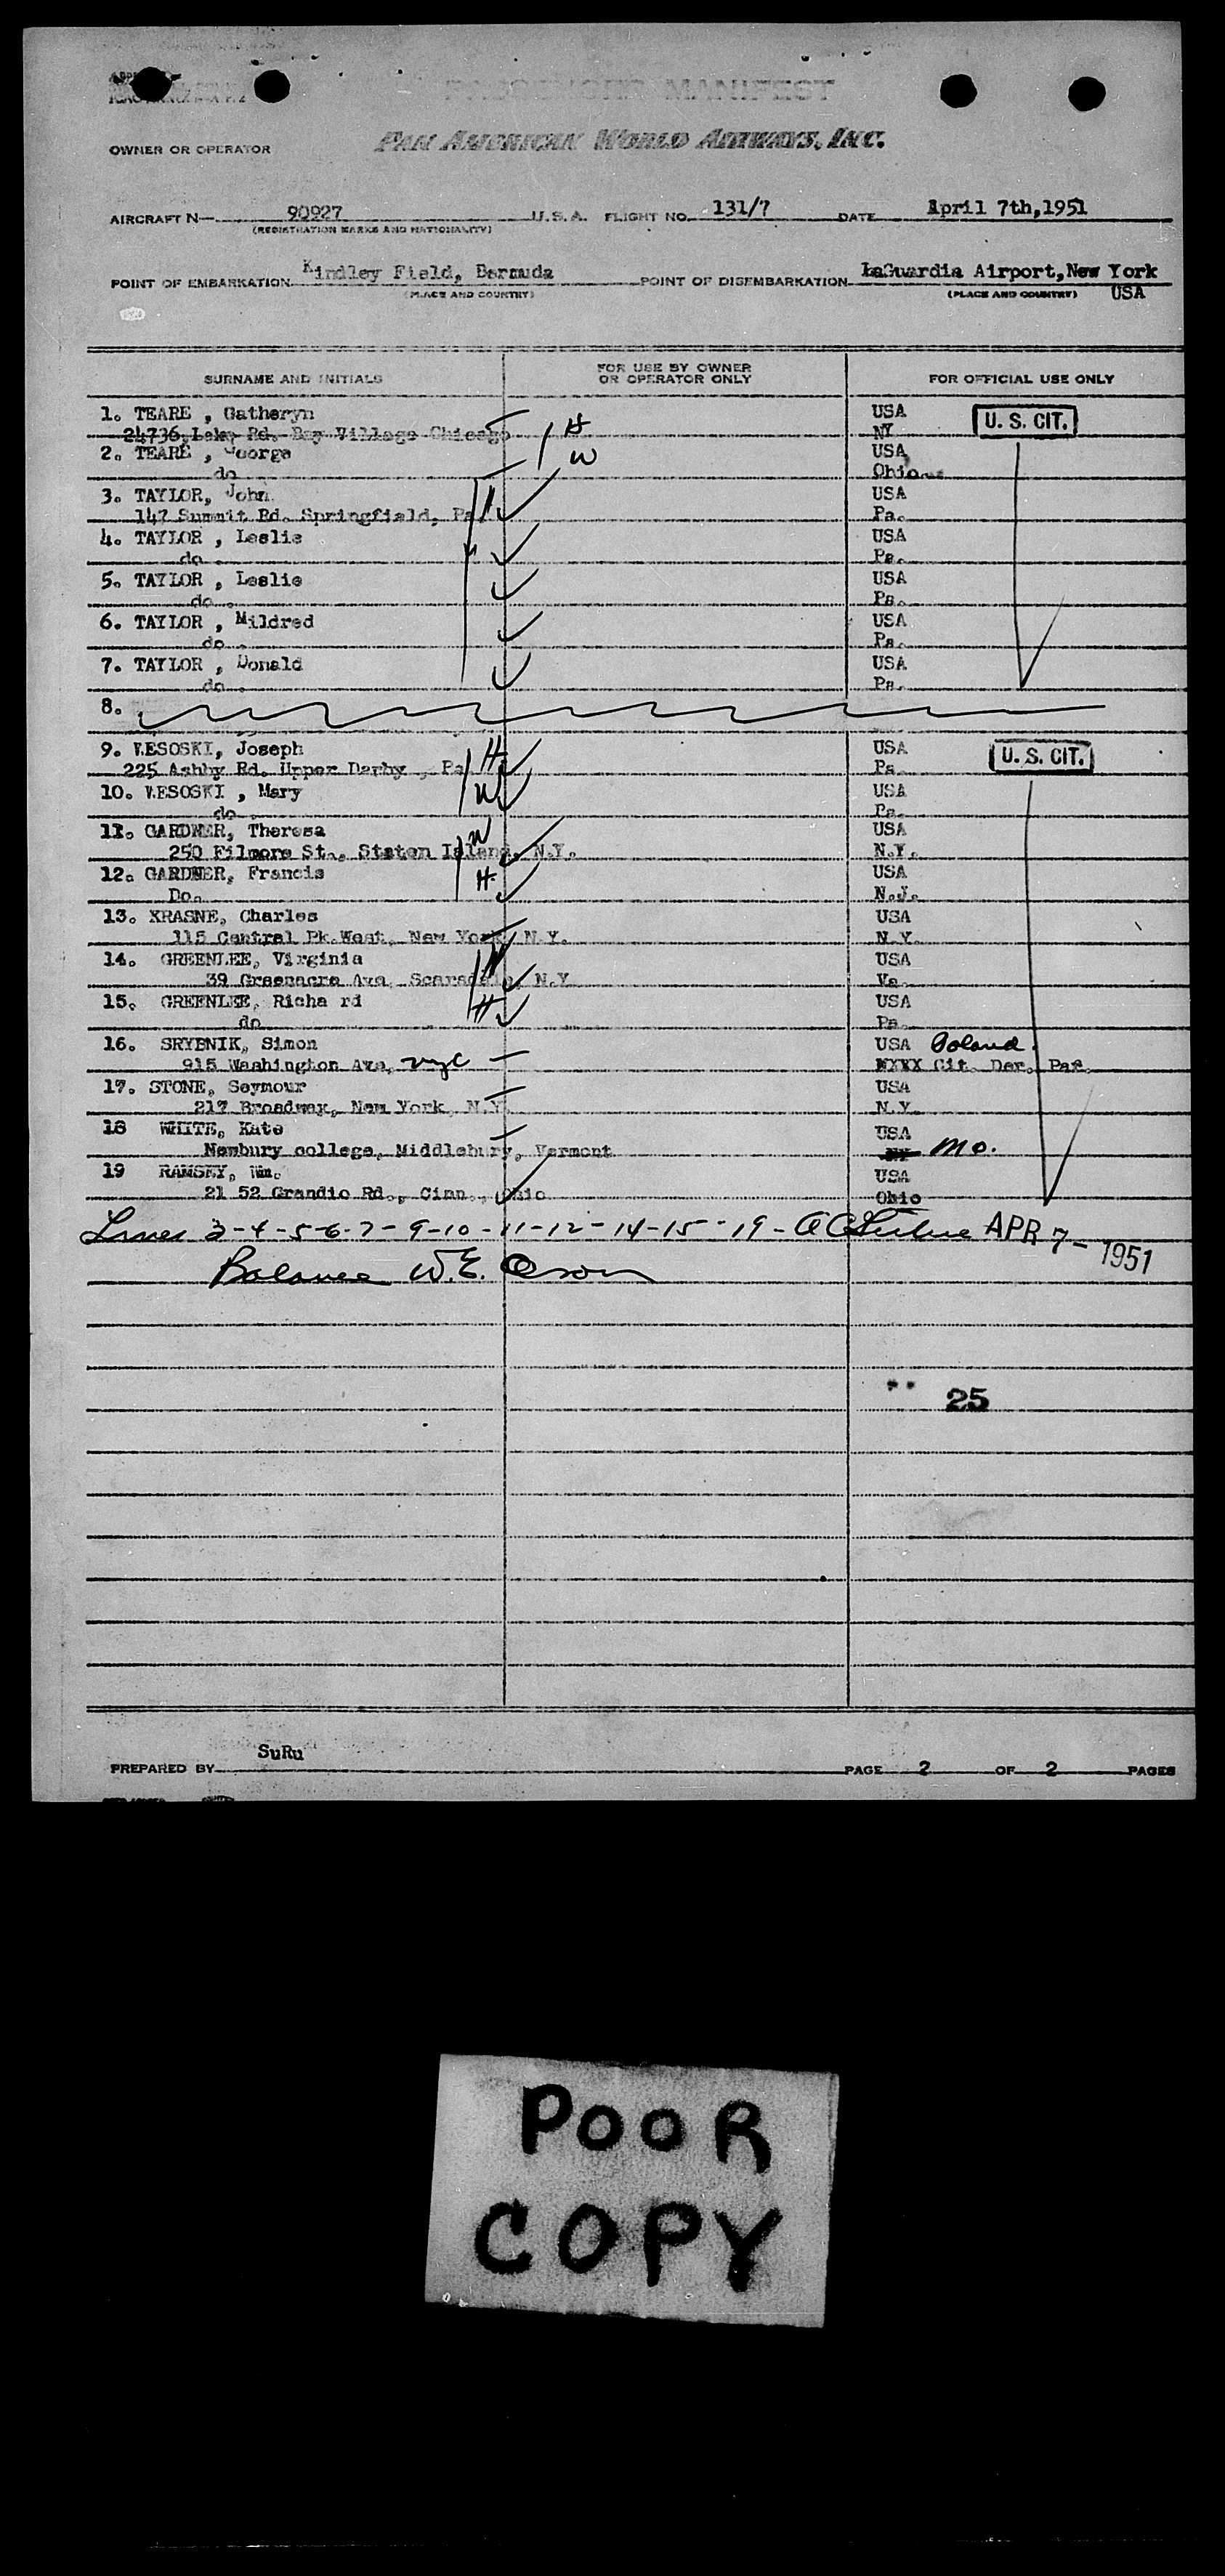 PASSENGER MANIFEST
OWNER OR OPERATOR PAN AMERICAN WORLD AIRWAYS, INC.
AIRCRAFT N— 90927 U.S.A. FLIGHT NO. 131/7 DATE April 7th,1951
(REGISTRATION MARKS AND NATIONALITY)
POINT OF EMBARKATION Kindley Field, Bermuda POINT OF DISEMBARKATION LaGuardia Airport,New York
(PLACE AND COUNTRY) (PLACE AND COUNTRY) USA
SURNAME AND INITIALS FOR USE BY OWNER OR OPERATOR ONLY FOR OFFICIAL USE ONLY
1. TEARE , Catheryn USA U. S. CIT.
24736,Lake Rd. Bay Village Chicago H NY
2. TEARE , George W USA
do Ohio.
3. TAYLOR, John USA
147 Summit Rd. Springfield, Pa Pa.
4. TAYLOR , Leslie USA
do . Pa.
5. TAYLOR , Leslie USA
do . Pa.
6. TAYLOR , Mildred USA
do . Pa.
7. TAYLOR , Donald USA
do . Pa.
8.
9. WESOSKI, Joseph H USA U. S. CIT.
225 Ashby Rd. Upper Darby , Pa Pa
10. WESOSKI , Mary W USA
do . Pa.
11. GARDNER, Theresa W USA
250 Filmore St., Staten Island, N.Y. N.Y.
12. GARDNER, Francis H USA
Do. N.J.
13. KRASNE, Charles USA
115 Central Pk.West, New York, N.Y. N.Y.
14. GREENLEE, Virginia W USA
39 Greenacre Ave, Scarsdale, N.Y Va.
15. GREENLEE, Richa rd H USA
do Pa.
16. SRYBNIK, Simon USA Poland.
915 Washington Ave, nyc NYXX Cit. Der. Par.
17. STONE, Seymour USA
217 Broadway, New York, N.Y. N.Y.
18 WHITE, Kate USA
Newbury college, Middlebury, Vermont NY Mo.
19 RAMSEY, Wm. USA
21 52 Grandio Rd., Cinn., Ohio Ohio
Lines 3-4-5-6-7-9-10-11-12-14-15-19- APR 7- 1951
Balance W.E.
25
PREPARED BY SuRu PAGE 2 OF 2 PAGES
POOR
COPY